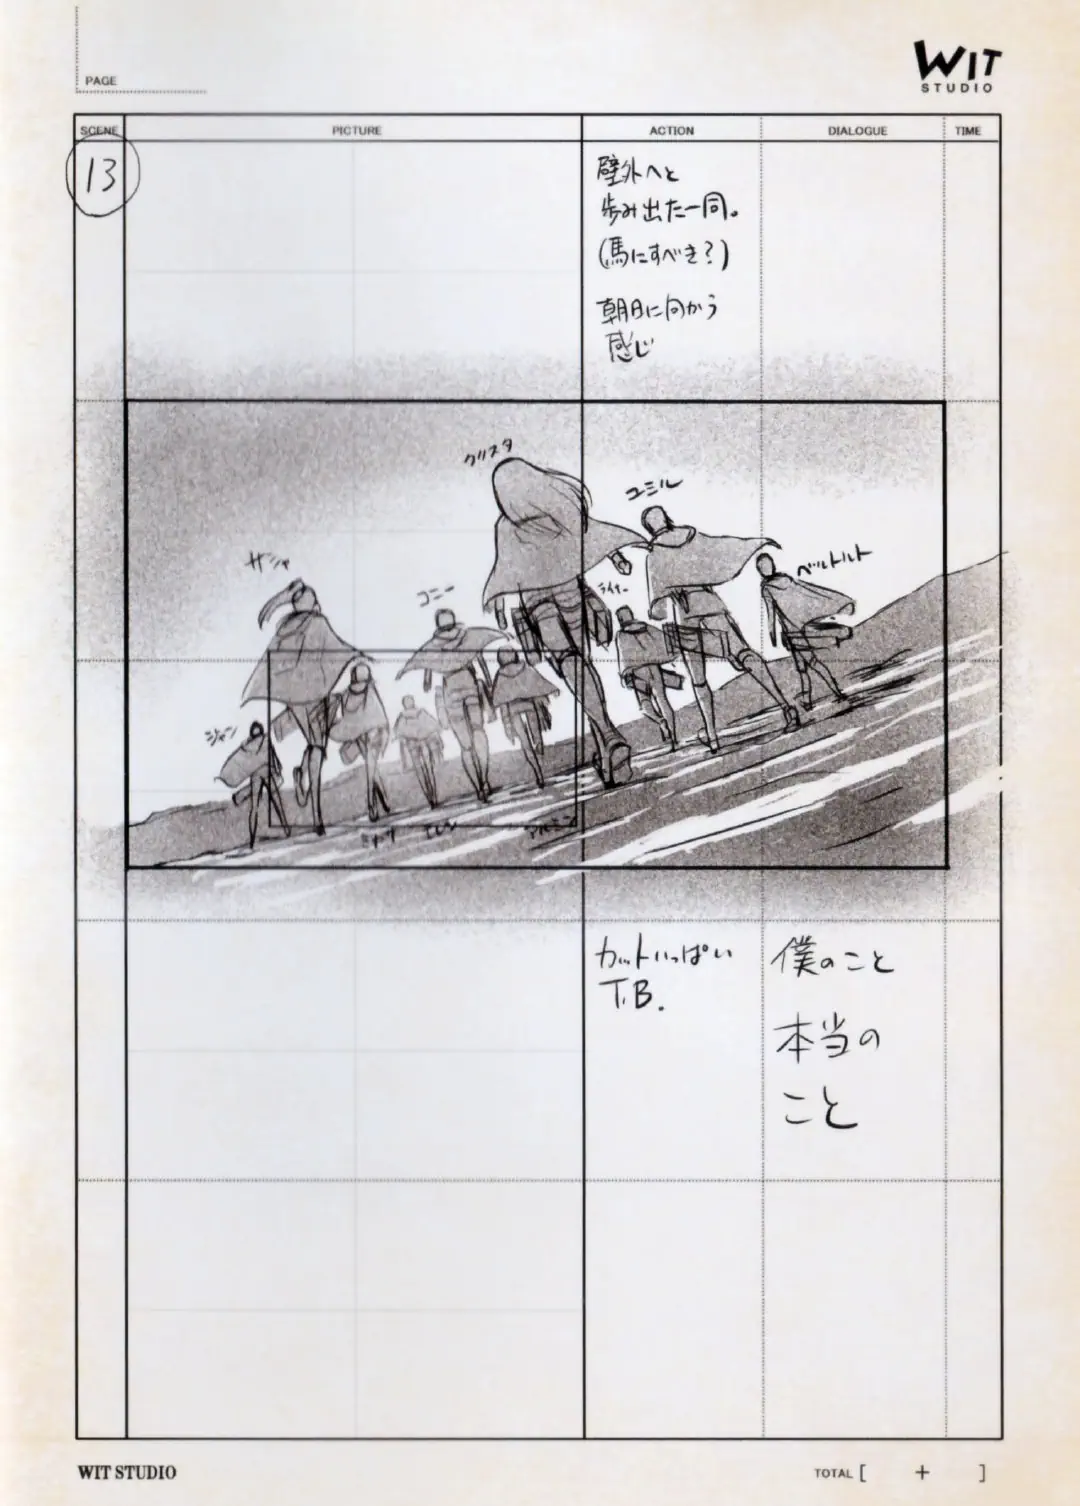 PAGE
WIT
STUDIO
SCENE
PICTURE
ACTION
DIALOGUE
TIME
13
壁外へと
歩み出た一同。
(馬にすべき?)
朝日に向かう
感じ
クリスタ
ユミル
ベルトルト
サシャ
コニー
ライナー
ジャン
ミカサ
エレン
アルミン
カットいっぱい
T.B.
僕のこと
本当の
こと
WIT STUDIO
TOTAL [ + ]